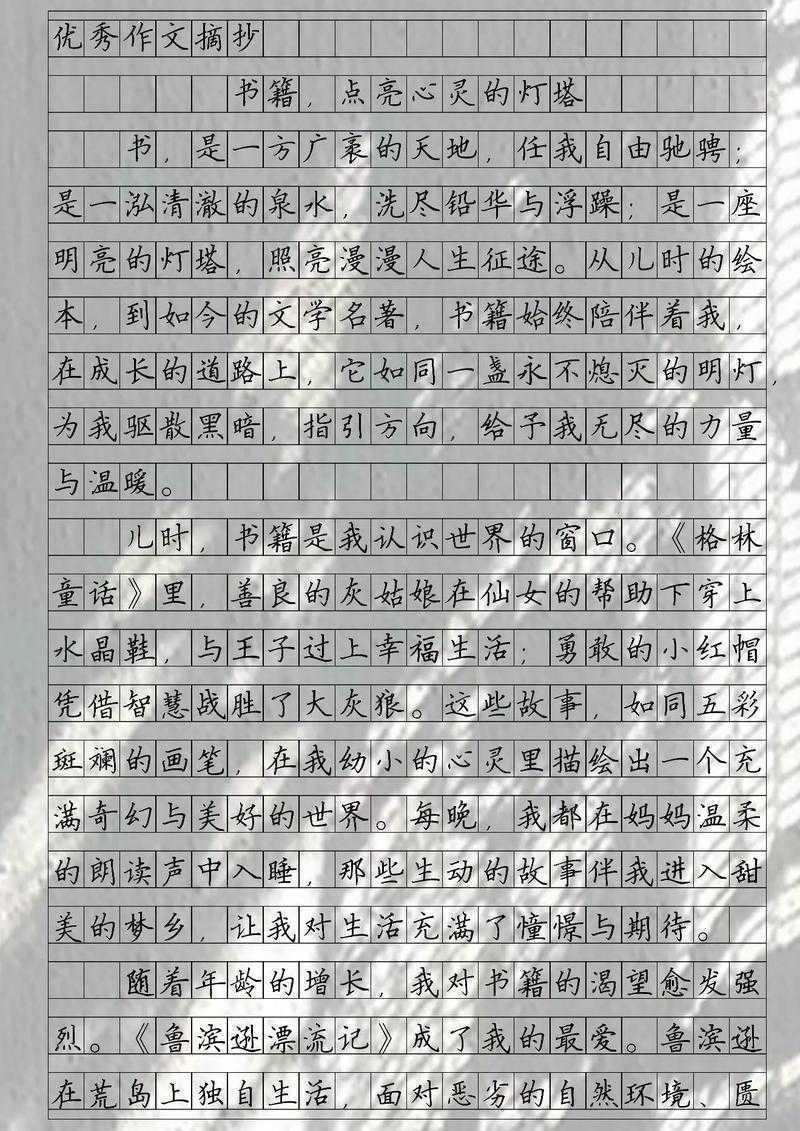 优秀作文摘抄
书籍，点亮心灵的灯塔
书，是一方广袤的天地，任我自由驰骋；
是一泓清澈的泉水，洗尽铅华与浮躁；是一座
明亮的灯塔，照亮漫漫人生征途。从儿时的绘
本，到如今的文学名著，书籍始终陪伴着我，
在成长的道路上，它如同一盏永不熄灭的明灯，
为我驱散黑暗，指引方向，给予我无尽的力量
与温暖。
儿时，书籍是我认识世界的窗口。《格林
童话》里，善良的灰姑娘在仙女的帮助下穿上
水晶鞋，与王子过上幸福生活；勇敢的小红帽
凭借智慧战胜了大灰狼。这些故事，如同五彩
斑斓的画笔，在我幼小的心灵里描绘出一个充
满奇幻与美好的世界。每晚，我都在妈妈温柔
的朗读声中入睡，那些生动的故事伴我进入甜
美的梦乡，让我对生活充满了憧憬与期待。
随着年龄的增长，我对书籍的渴望愈发强
烈。《鲁滨逊漂流记》成了我的最爱。鲁滨逊
在荒岛上独自生活，面对恶劣的自然环境、匮